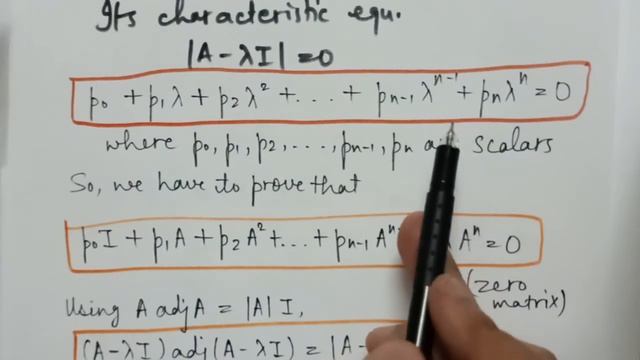 Its characteristic equ.
|A-λI| = 0
p₀ + p₁λ + p₂λ² + ... + pₙ₋₁λⁿ⁻¹ + pₙλⁿ = 0
where p₀, p₁, p₂, ...., pₙ₋₁, pₙ scalars
So, we have to prove that
p₀I + p₁A + p₂A² + ... + pₙ₋₁Aⁿ Aⁿ = 0
(zero matrix)
Using A adj A = |A| I,
(A-λI) adj(A-λI) = |A-